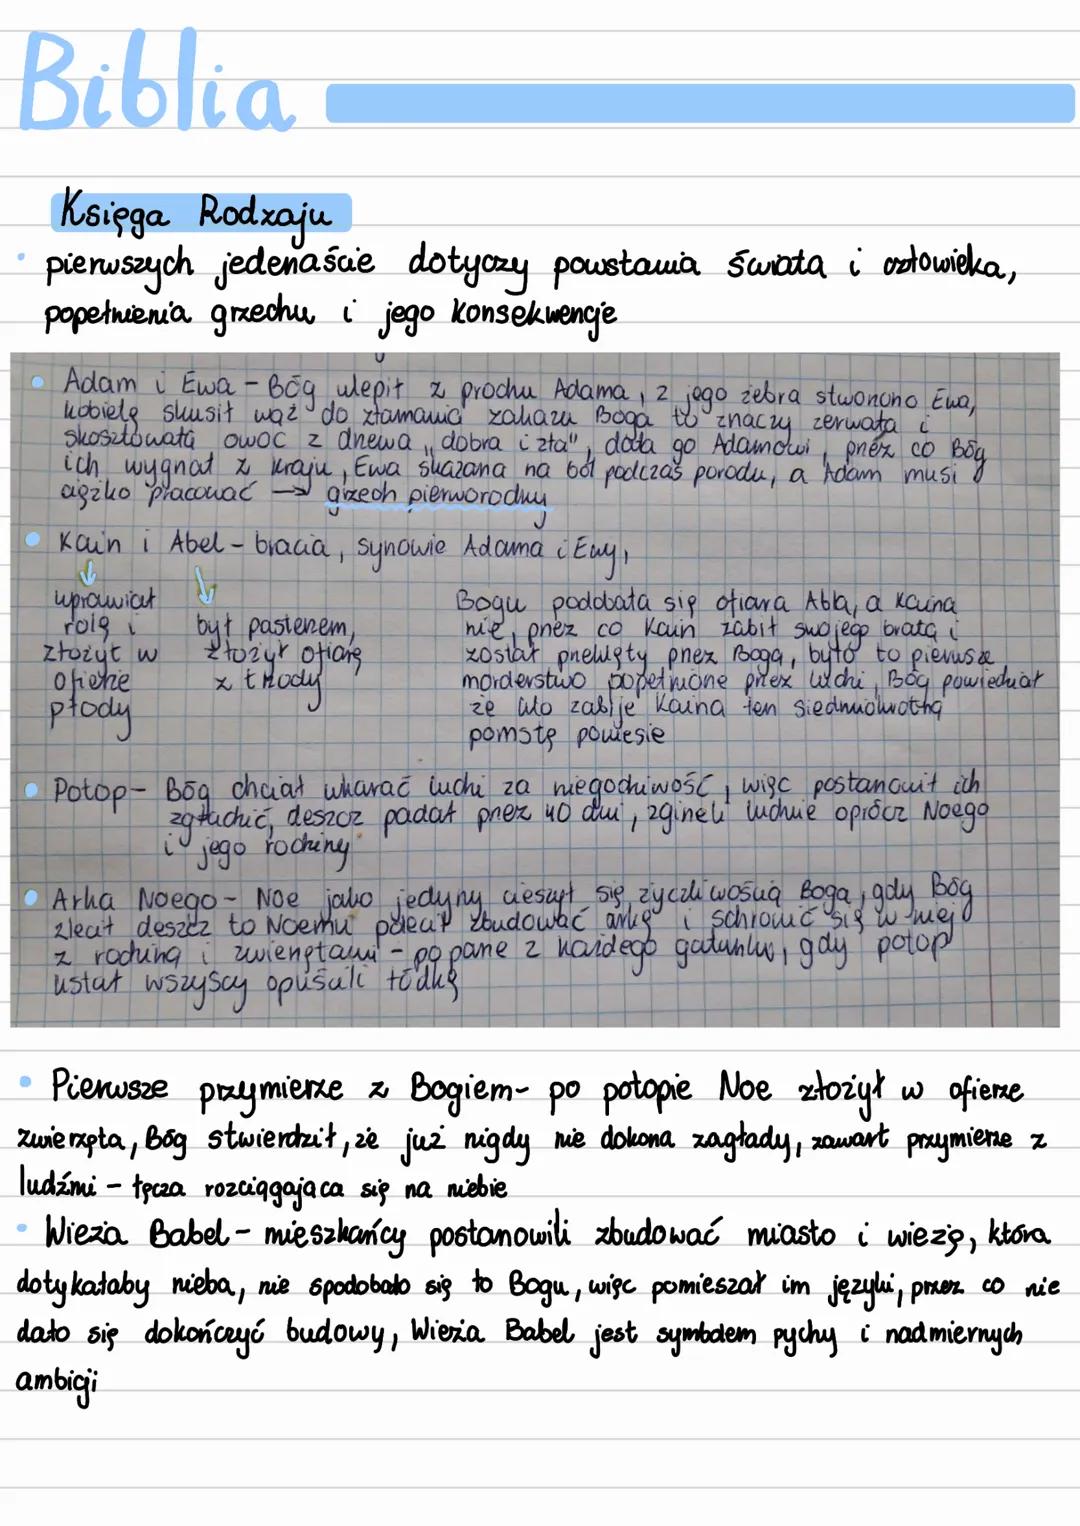 Biblia
Księga Rodzaju
• pierwszych jedenaście dotyczy powstania świata i człowieka,
popełnienia grzechu i jego konsekwencje
• Adam i Ewa - Bóg ulepił z prochu Adama, z jego żebra stworzono Ewę,
kobietę skusił wąż do złamania zakazu Boga to znaczy zerwała i
skosztowała owoc z drzewa „dobra i zła", dała go Adamowi, przez co Bóg
ich wygnał z kraju, Ewa skazana na ból podczas porodu, a Adam musi
ciężko pracować → grzech pierworodny
• Kain i Abel - bracia, synowie Adama i Ewy,
uprawiał
rolę i
złożył w
ofierze
płody
był pasterzem,
złożył ofiarę
z trzody
Bogu podobała się ofiara Abla, a Kaina
nie, przez co Kain zabił swojego brata i
został przeklęty przez Boga, było to pierwsze
morderstwo popełnione przez ludzi, Bóg powiedział
że kto zabije Kaina ten siedmiokrotną
pomstę poniesie
• Potop - Bóg chciał ukarać ludzi za niegodziwość, więc postanowił ich
zgładzić, deszcz padał przez 40 dni, zgineli ludzie oprócz Noego
i jego rodziny
• Arka Noego - Noe jako jedyny cieszył się życzliwością Boga, gdy Bóg
zlecił deszcz to Noemu polecił zbudować arkę i schronić się w niej
z rodziną i zwierzętami - po parze z każdego gatunku, gdy potop
ustał wszyscy opuścili łódkę
• Pierwsze przymierze z Bogiem- po potopie Noe złożył w ofierze
zwierzęta, Bóg stwierdził, że już nigdy nie dokona zagłady, zawarł przymierze z
ludźmi - tęcza rozciągająca się na niebie
• Wieża Babel - mieszkańcy postanowili zbudować miasto i wieżę, która
dotykałaby nieba, nie spodobało się to Bogu, więc pomieszał im języki, przez co nie
dało się dokończyć budowy, Wieża Babel jest symbolem pychy i nadmiernych
ambicji